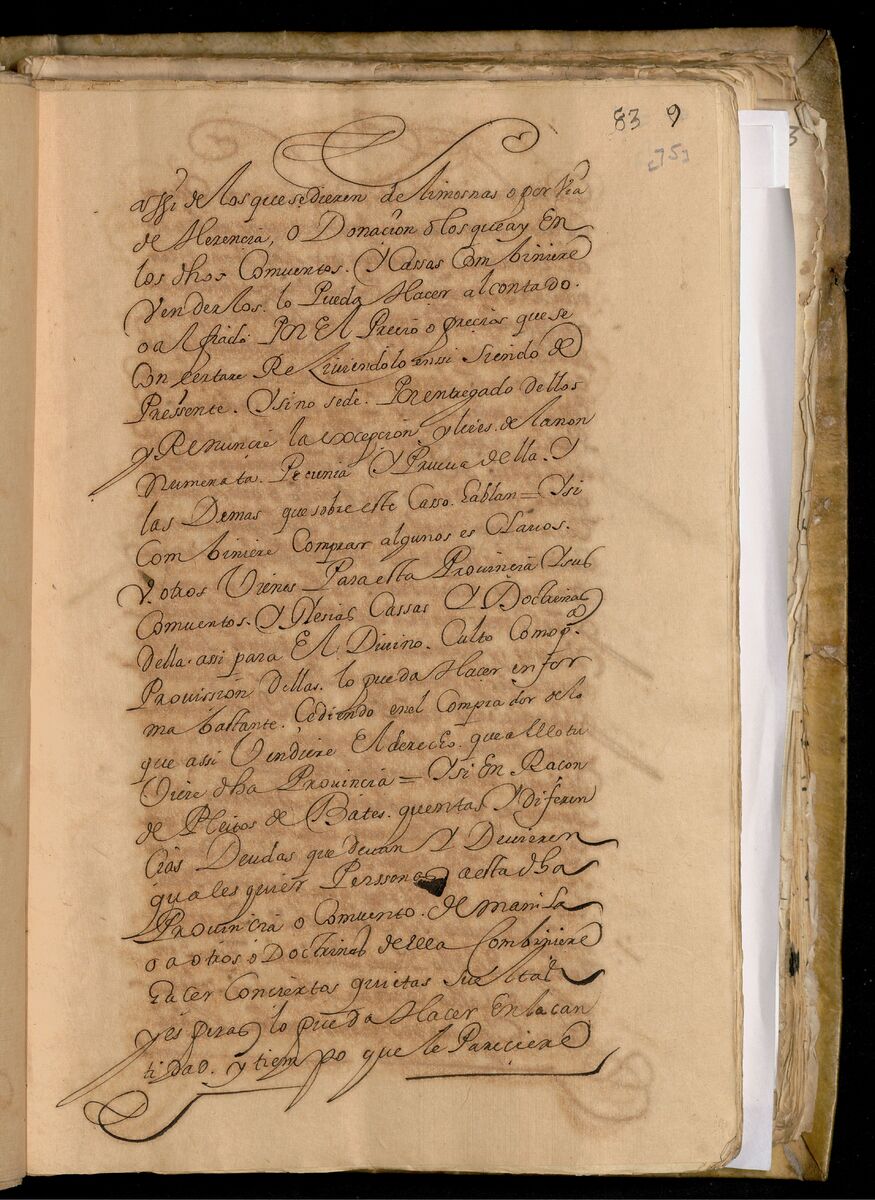 83 9
[75]
assi de los que se dieren de limosnas o por Via
de Herencia, o Donacion o los que ay En
los dhos Comuentos. Y Cassas Com biniere
Vender los. lo Pueda Hacer al contado.
o al fiado. Por El Precio o precios que se
Con certare Reciviendolo enssi Siendo de
Pressente. Y si no se de. Por entregado dellos
y Renuncie la excepcion y leies. de la non
Numerata. Pecunia Y Prueua della. Y
las Demas que sobre este Casso. hablan = Y si
Com biniere Comprar algunos es Clauos.
V. otros Vienes Para esta Prouincia Y sus
Comuentos. Y Yglesias Cassas Y Doctrinas
della. assi para El Diuino. Culto Como pa.
Prouission dellas. lo pueda Hacer en for
ma bastante. Cediendo en el Comprador de lo
que assi Vendiere El derecho. que a ello tu
Viere dha Prouincia = Y si En Racon
de Pleitos de Bates. quentas Y diferen
cias Deudas que deuan Y Deuieren
quales quier Perssonas a esta dha
Prouincia o Comuento. de manila
o a otros o Doctrinas de ella Combiniere
hacer Conciertos quietas sueltas
y es peras lo pueda Hacer En la can
tidad. y tiempo que le Pareciere